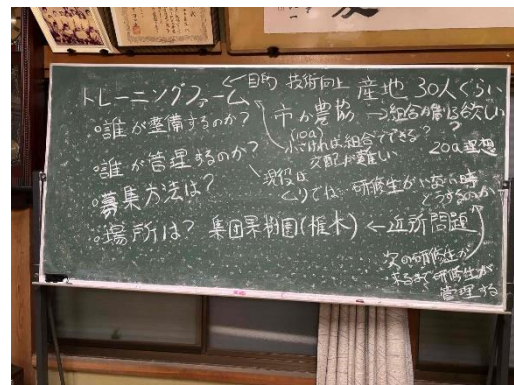 トレーニングファーム ← 目的 技術向上 産地 30人ぐらい
・誰が整備するのか? 市か農協 → 組合が借りる 欲しい
(10a)
小さければ組合でできる? 20a理想
・誰が管理するのか? 交配が難しい
現役は
・募集方法は? くりでは 研修生がいない時
どうするのか
・場所は? 集団果樹園(椎木) ← 近所問題
次の研修生が
来るまで研修生が
管理する